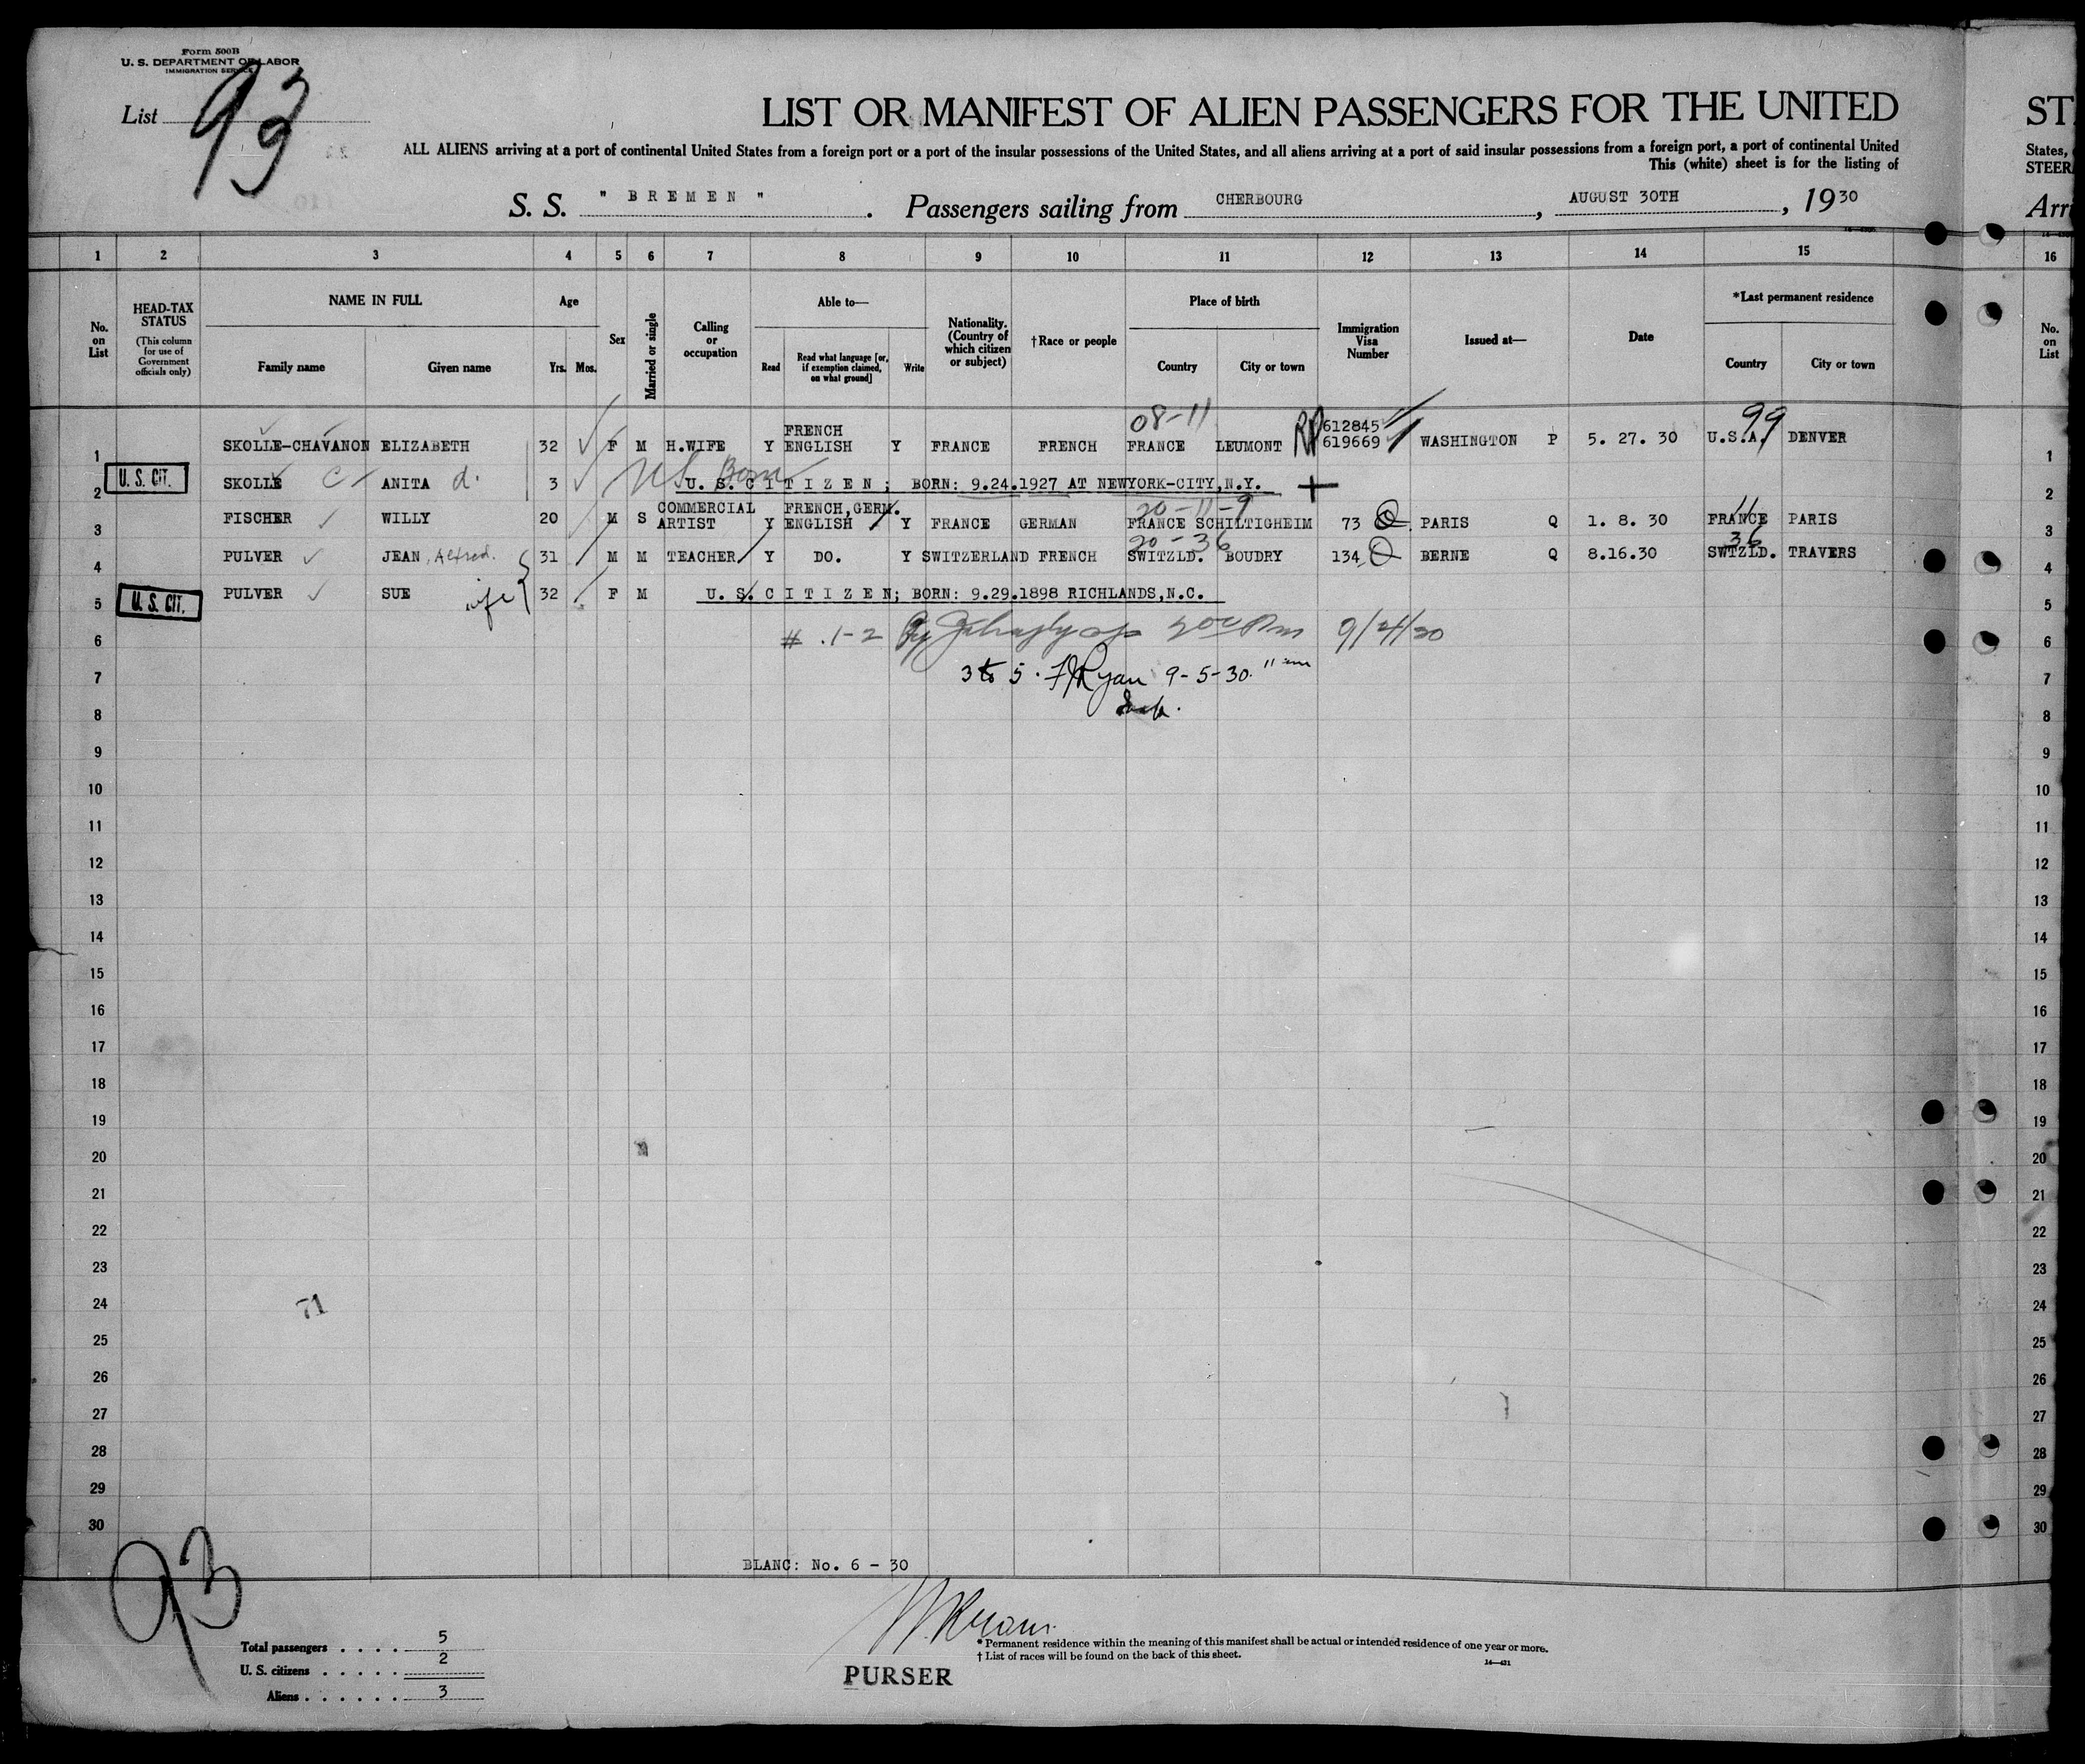 Form 500B
U. S. DEPARTMENT OF LABOR
IMMIGRATION SERVICE
List 93
LIST OR MANIFEST OF ALIEN PASSENGERS FOR THE UNITED
ST
ALL ALIENS arriving at a port of continental United States from a foreign port or a port of the insular possessions of the United States, and all aliens arriving at a port of said insular possessions from a foreign port, a port of continental United
States,
This (white) sheet is for the listing of
STEER
S. S. " B R E M E N " . Passengers sailing from CHERBOURG , AUGUST 30TH , 19 30
Arri
1 2 3 4 5 6 7 8 9 10 11 12 13 14 15 16
No. on List
HEAD-TAX STATUS (This column for use of Government officials only)
NAME IN FULL
Family name Given name
Age
Yrs. Mos.
Sex
Married or single
Calling or occupation
Able to—
Read Read what language [or, if exemption claimed, on what ground] Write
Nationality. (Country of which citizen or subject)
†Race or people
Place of birth
Country City or town
Immigration Visa Number
Issued at—
Date
*Last permanent residence
Country City or town
No. on List
08-11 99
FRENCH 612845
1 SKOLLE-CHAVANON ELIZABETH 32 F M H.WIFE Y ENGLISH Y FRANCE FRENCH FRANCE LEUMONT RP 619669 WASHINGTON P 5. 27. 30 U.S.A. DENVER 1
US Born
2 U. S. CIT. SKOLLE C ANITA d. 3 U. S. C I T I Z E N ; BORN: 9.24.1927 AT NEWYORK-CITY,N.Y. + 2
COMMERCIAL FRENCH,GERM. 20-11-9 11
3 FISCHER WILLY 20 M S ARTIST Y ENGLISH Y FRANCE GERMAN FRANCE SCHILTIGHEIM 73 Q PARIS Q 1. 8. 30 FRANCE PARIS 3
20-36 36
4 PULVER JEAN, Alfred. 31 M M TEACHER Y DO. Y SWITZERLAND FRENCH SWITZLD. BOUDRY 134 Q BERNE Q 8.16.30 SWTZLD. TRAVERS 4
5 U. S. CIT. PULVER SUE wife 32 F M U. S. C I T I Z E N; BORN: 9.29.1898 RICHLANDS,N.C. 5
6 # 1-2 9/4/30 6
7 3 to 5. FJRyan 9-5-30. 11 am 7
8 8
9 9
10 10
11 11
12 12
13 13
14 14
15 15
16 16
17 17
18 18
19 19
20 20
21 21
22 22
23 23
24 71 24
25 25
26 26
27 27
28 28
29 29
30 30
BLANC: No. 6 - 30
93
Total passengers . . . . 5
U. S. citizens . . . . . 2
Aliens . . . . . . 3
PURSER
* Permanent residence within the meaning of this manifest shall be actual or intended residence of one year or more.
† List of races will be found on the back of this sheet.
14—421